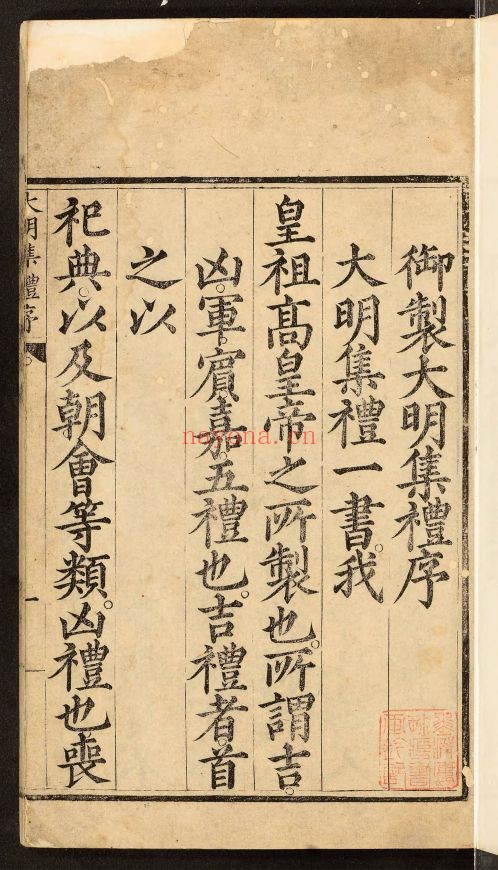 御製大明集禮序
大明集禮一書。我
皇祖高皇帝之所製也。所謂吉。
凶。軍。賓。嘉。五禮也。吉禮者首
之以
祀典。以及朝會等類。凶禮也喪
大明集禮序
一
nayona.cn